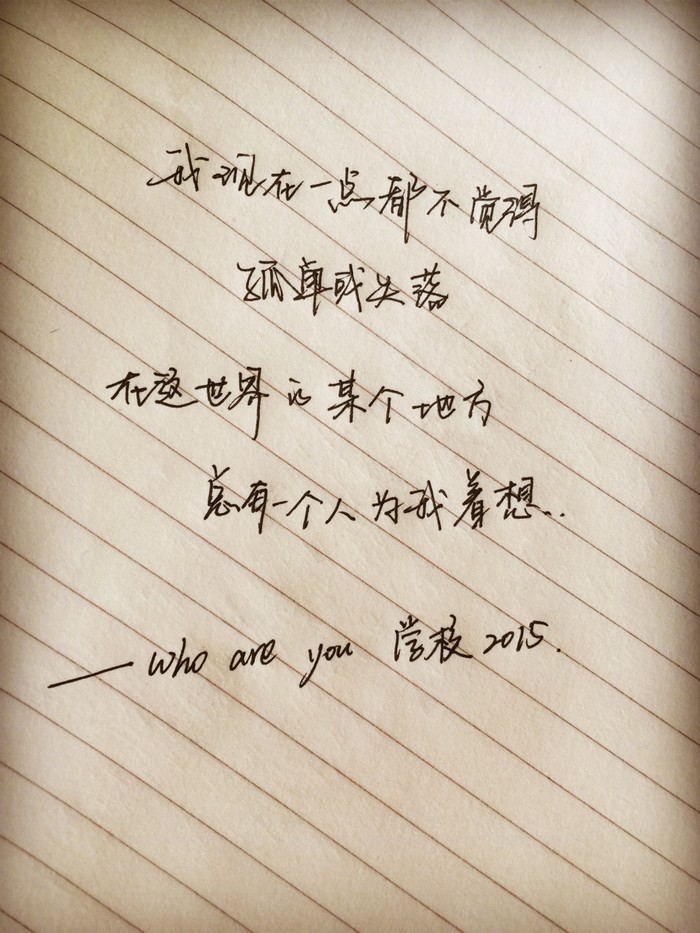 我现在一点都不觉得
孤单或失落
在这世界的某个地方
总有一个人为我着想..
——who are you 学校2015.